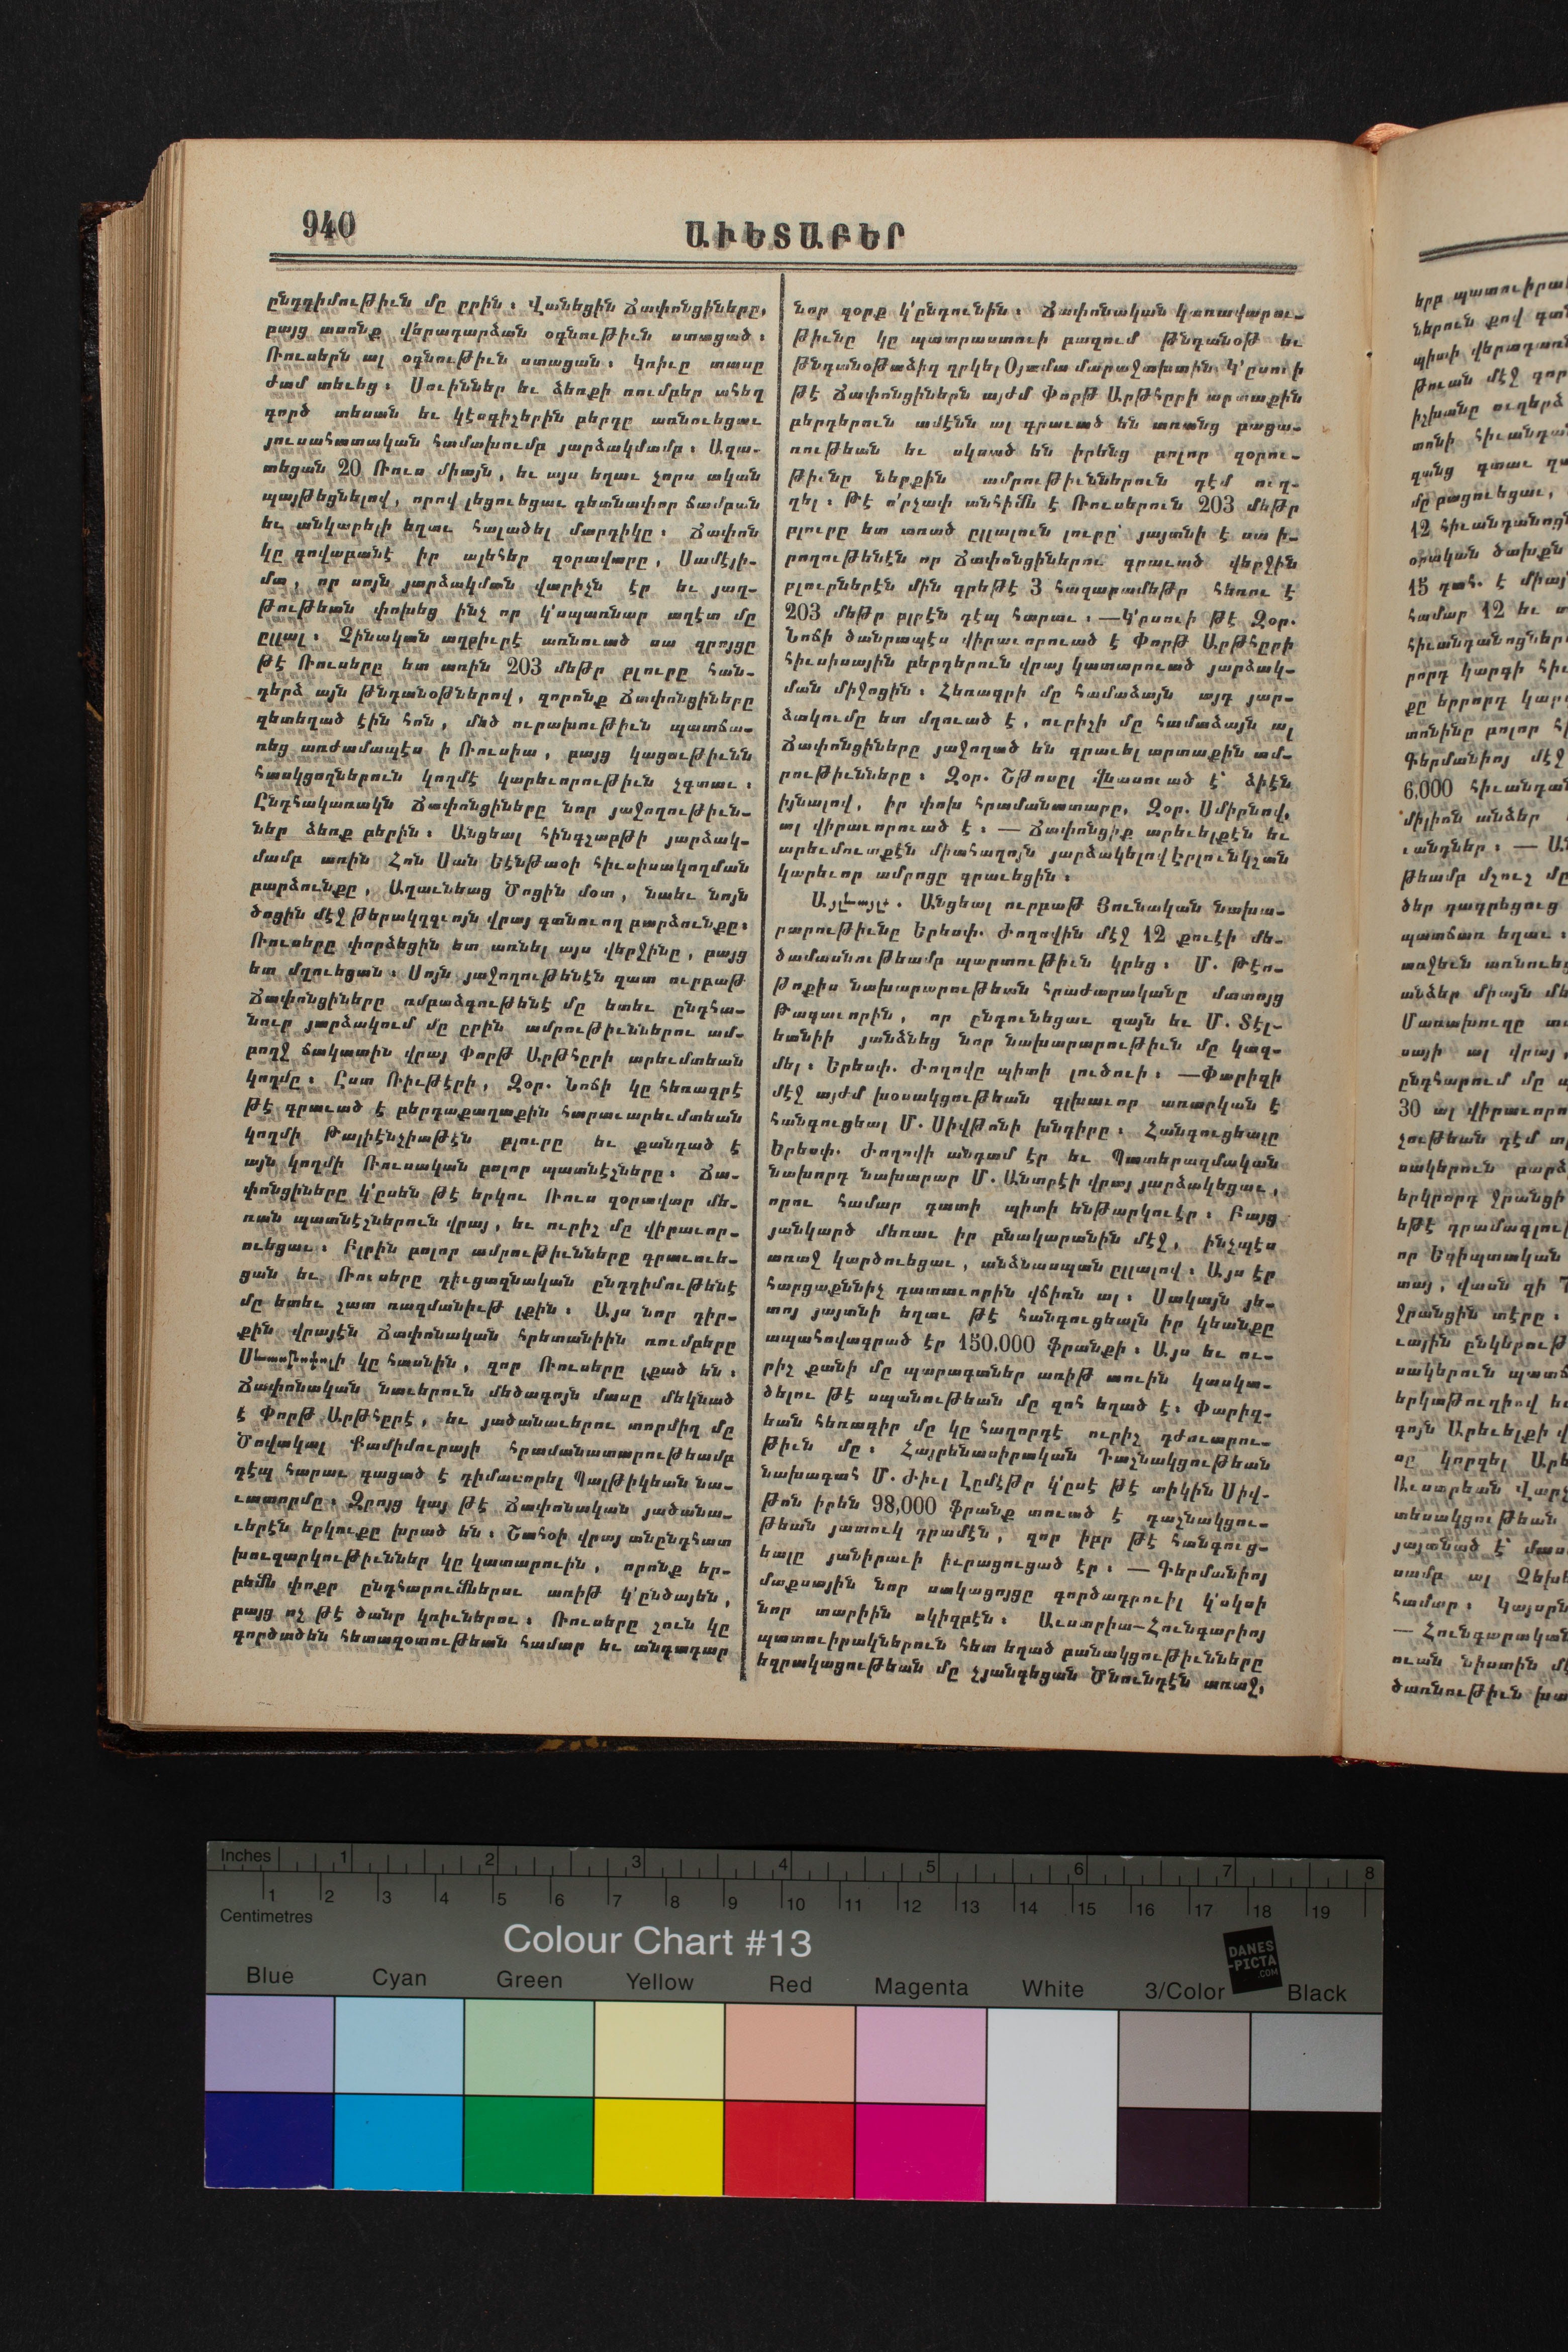 940
ԱՒԵՏԱԲԵՐ
ընդդիմութիւն մը ըրին։ Վանեցին Ճափոնցիները,
բայց ասոնք վերադարձան օգնութիւն ստացած։
Ռուսերն ալ օգնութիւն ստացան։ Կռիւը տասը
ժամ տեւեց։ Սուիններ եւ ձեռքի ռումբեր ահեղ
գործ տեսան եւ կէսգիշերին բերդը առնուեցաւ
յուսահատական համախումբ յարձակմամբ։ Ազա-
տեցան 20 Ռուս միայն, եւ այս եղաւ չորս ական
պայթեցնելով, որով լեցուեցաւ գետնափոր ճամբան
եւ անկարելի եղաւ հալածել մարդիկը։ Ճափոն
կը գովաբանէ իր ալեհեր զօրավարը, Սամէյի-
մա, որ սոյն յարձակման վարիչն էր եւ յաղ-
թութեան փոխեց ինչ որ կ'սպառնար աղէտ մը
ըլլալ։ Զինական աղբիւրէ առնուած սա զրոյցը
թէ Ռուսերը ետ առին 203 մեթր բլուրը հան-
դերձ այն թնդանօթներով, զորոնք Ճափոնցիները
զետեղած էին հոն, մեծ ուրախութիւն պատճա-
ռեց առժամապէս ի Ռուսիա, բայց կացութիւնն
հասկցողներուն կողմէ կարեւորութիւն չգտաւ։
Ընդհակառակն Ճափոնցիները նոր յաջողութիւն-
ներ ձեռք բերին։ Անցեալ հինգշաբթի յարձակ-
մամբ առին Հոն Սան Եէնթաօի հիւսիսակողման
բարձունքը, Աղաւնեաց Ծոցին մօտ, նաեւ նոյն
ծոցին մէջ թերակղզւոյն վրայ գտնուող բարձունքը։
Ռուսերը փորձեցին ետ առնել այս վերջինը, բայց
ետ մղուեցան։ Սոյն յաջողութենէն զատ ուրբաթ
Ճափոնցիները ռմբաձգութենէ մը ետեւ ընդհա-
նուր յարձակում մը ըրին ամրութիւններու ամ-
բողջ ճակատին վրայ Փորթ Արթհըրի արեւմտեան
կողմը։ Ըստ Ռիւթէրի, Զօր. Նոճի կը հեռագրէ
թէ գրաւած է բերդաքաղաքին հարաւարեւմտեան
կողմի Թալիէնչիաթէն բլուրը եւ քանդած է
այն կողմի Ռուսական բոլոր պատնէշները։ Ճա-
փոնցիները կ'ըսեն թէ երկու Ռուս զօրավար մե-
ռան պատնէշներուն վրայ, եւ ուրիշ մը վիրաւոր-
ուեցաւ։ Բլրին բոլոր ամրութիւնները գրաւուե-
ցան եւ Ռուսերը դիւցազնական ընդդիմութենէ
մը ետեւ շատ ռազմանիւթ լքին։ Այս նոր դիր-
քին վրայէն Ճափոնական հրետանիին ռումբերը
կը հասնին, զոր Ռուսերը լքած են։
Ճափոնական նաւերուն մեծագոյն մասը մեկնած
է Փորթ Արթհըրէ, եւ յածանաւերու տորմիղ մը
Ծովակալ Քամիմուրայի հրամանատարութեամբ
դէպ հարաւ գացած է դիմաւորել Պալթիկեան նա-
ւատորմը։ Զրոյց կայ թէ Ճափոնական յածանա-
ւերէն երկուքը խրած են։ Շահօի վրայ անընդհատ
խուզարկութիւններ կը կատարուին, որոնք եր-
բեմն փոքր ընդհարումներու առիթ կ'ընծայեն,
բայց ոչ թէ ծանր կռիւներու։ Ռուսերը շուն կը
գործածեն հետազօտութեան համար եւ անդադար
նոր զօրք կ'ընդունին։ Ճափոնական կառավարու-
թիւնը կը պատրաստուի բազում թնդանօթ եւ
թնդանօթաձիգ ղրկել Օյամա մարաջախտին։ Կ'ըսուի
թէ Ճափոնցիներն այժմ Փորթ Արթհըրի արտաքին
բերդերուն ամէնն ալ գրաւած են առանց բացա-
ռութեան եւ սկսած են իրենց բոլոր զօրու-
թիւնը ներքին ամրութիւններուն դէմ ուղ-
ղել։ Թէ ո՛րչափ անհիմն է Ռուսերուն 203 մեթր
բլուրը ետ առած ըլլալուն լուրը՝ յայտնի է սա ի-
րողութենէն որ Ճափոնցիներու գրաւած վերջին
բլուրներէն մին գրեթէ 3 հազարամեթր հեռու է
203 մեթր բլրէն դէպ հարաւ։ — Կ'ըսուի թէ Զօր.
Նոճի ծանրապէս վիրաւորուած է Փորթ Արթհըրի
հիւսիսային բերդերուն վրայ կատարուած յարձակ-
ման միջոցին։ Հեռագրի մը համաձայն այդ յար-
ձակումը ետ մղուած է, ուրիշի մը համաձայն ալ
Ճափոնցիները յաջողած են գրաւել արտաքին ամ-
րութիւնները։ Զօր. Շթոսըլ վնասուած է՝ ձիէն
իյնալով, իր փոխ հրամանատարը, Զօր. Սմիրնով,
ալ վիրաւորուած է։ — Ճափոնցիք արեւելքէն եւ
արեւմուտքէն միահաղոյն յարձակելով Էրլունկշան
կարեւոր ամրոցը գրաւեցին։
Այլեւայլք. Անցեալ ուրբաթ Յունական նախա-
րարութիւնը Երեսփ. Ժողովին մէջ 12 քուէի մե-
ծամասնութեամբ պարտութիւն կրեց։ Մ. Թէո-
թոքիս նախարարութեան հրաժարականը մատոյց
Թագաւորին, որ ընդունեցաւ զայն եւ Մ. Տէլ-
եանիի յանձնեց նոր նախարարութիւն մը կազ-
մել։ Երեսփ. Ժողովը պիտի լուծուի։ — Փարիզի
մէջ այժմ խօսակցութեան գլխաւոր առարկան է
հանգուցեալ Մ. Սիվթոնի խնդիրը։ Հանգուցեալը
Երեսփ. Ժողովի անդամ էր եւ Պատերազմական
նախորդ նախարար Մ. Անտրէի վրայ յարձակեցաւ,
որու համար դատի պիտի ենթարկուէր։ Բայց
յանկարծ մեռաւ իր բնակարանին մէջ, ինչպէս
առաջ կարծուեցաւ, անձնասպան ըլլալով։ Այս էր
հարցաքննիչ դատաւորին վճիռն ալ։ Սակայն յե-
տոյ յայտնի եղաւ թէ հանգուցեալն իր կեանքը
ապահովագրած էր 150,000 ֆրանքի։ Այս եւ ու-
րիշ քանի մը պարագաներ առիթ տուին կասկա-
ծելու թէ սպանութեան մը զոհ եղած է։ Փարիզ-
եան հեռագիր մը կը հաղորդէ ուրիշ դժուարու-
թիւն մը։ Հայրենասիրական Դաշնակցութեան
նախագահ Մ. Ժիւլ Լըմէթր կ'ըսէ թէ տիկին Սիվ-
թոն իրեն 98,000 ֆրանք տուած է դաշնակցու-
թեան յատուկ դրամէն, զոր իբր թէ հանգուց-
եալը յանիրաւի իւրացուցած էր։ — Գերմանիոյ
մաքսային նոր սակացոյցը գործադրուիլ կ'սկսի
նոր տարիին սկիզբէն։ Աւստրիա-Հունգարիոյ
պատուիրակներուն հետ եղած բանակցութիւնները
եզրակացութեան մը չյանգեցան Ծնունդէն առաջ,
Inches 1 2 3 4 5 6 7 8
1 2 3 4 5 6 7 8 9 10 11 12 13 14 15 16 17 18 19
Centimetres
Colour Chart #13
DANES
-PICTA
.COM
Blue Cyan Green Yellow Red Magenta White 3/Color Black